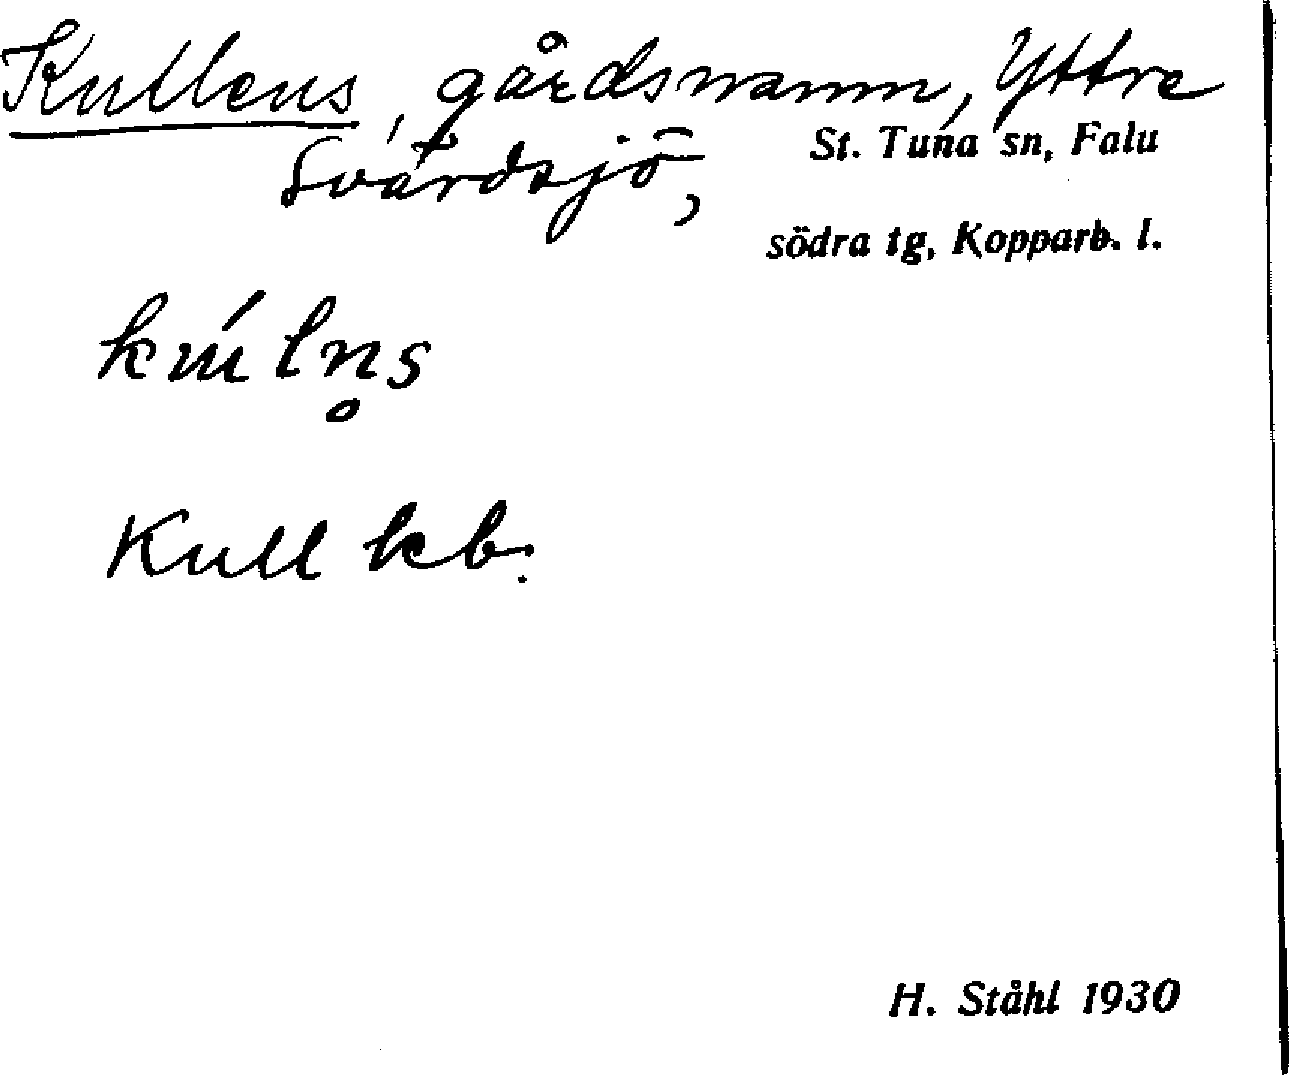 Kullens, gårdsnamn, Yttre
Svärdsjö,
St. Tuna sn, Falu
södra tg, Kopparb. l.
Kull kb.
H. Ståhl 1930